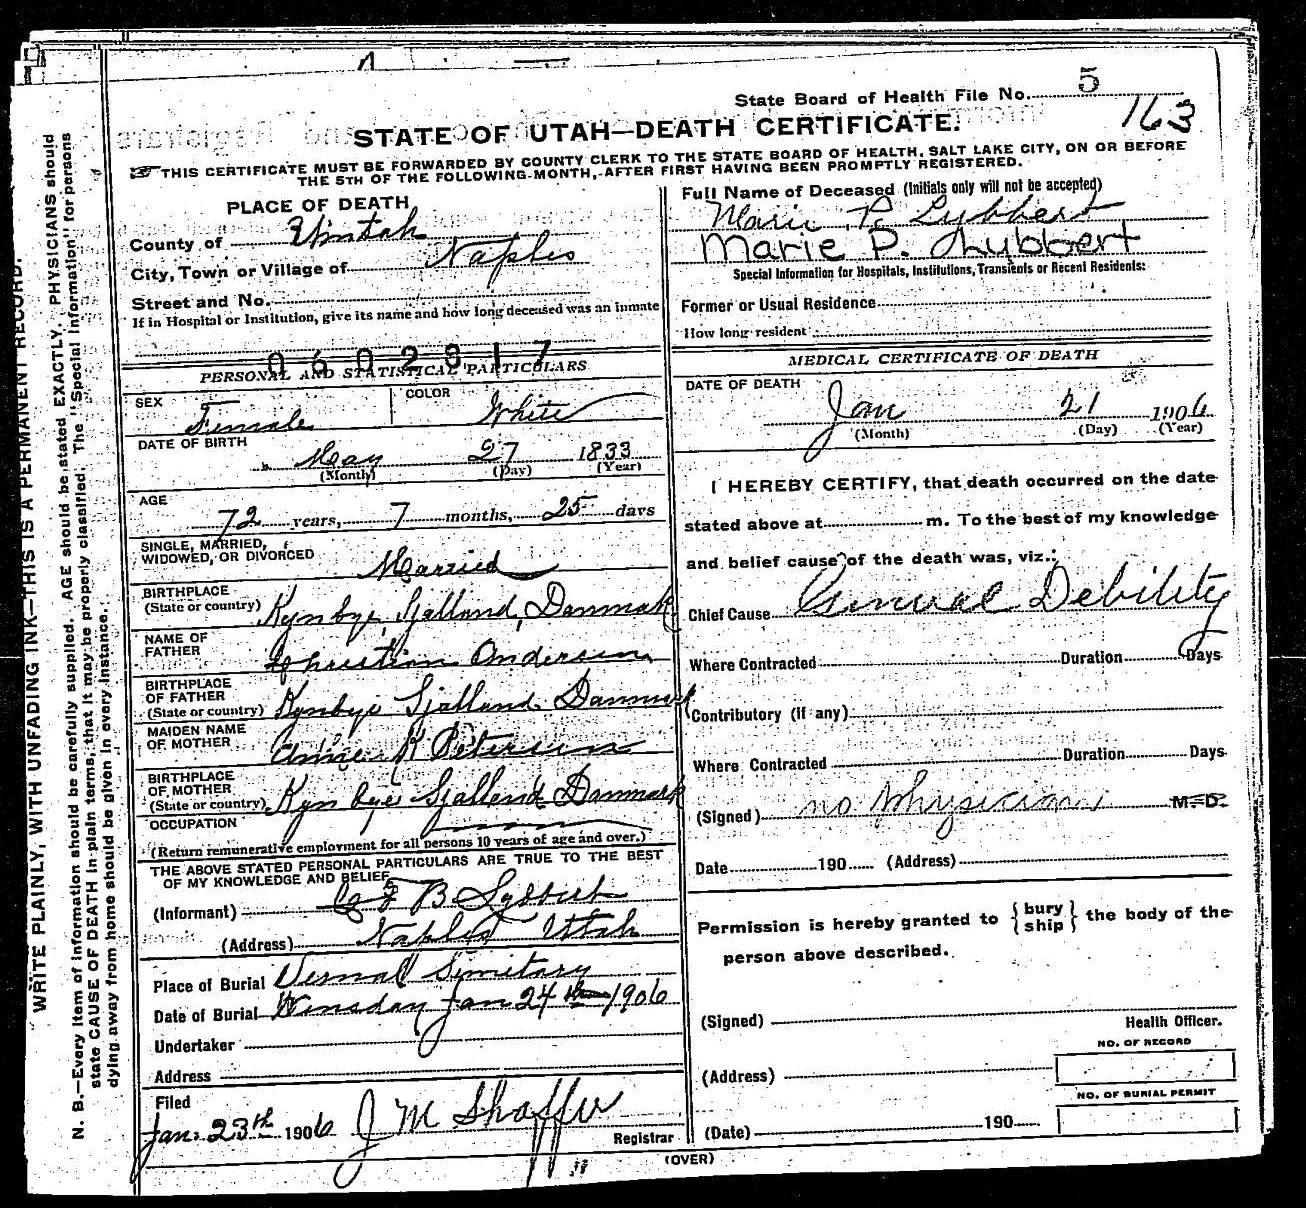 State Board of Health File No. 5
163
STATE OF UTAH—DEATH CERTIFICATE.
THIS CERTIFICATE MUST BE FORWARDED BY COUNTY CLERK TO THE STATE BOARD OF HEALTH, SALT LAKE CITY, ON OR BEFORE
THE 5TH OF THE FOLLOWING MONTH, AFTER FIRST HAVING BEEN PROMPTLY REGISTERED.
PLACE OF DEATH
County of Uintah
City, Town or Village of Naples
Street and No.
If in Hospital or Institution, give its name and how long deceased was an inmate
0602317
PERSONAL AND STATISTICAL PARTICULARS
SEX Female
COLOR White
DATE OF BIRTH May 27 1833
(Month) (Day) (Year)
AGE 72 years, 7 months, 25 days
SINGLE, MARRIED,
WIDOWED, OR DIVORCED Married
BIRTHPLACE
(State or country) Kynbye, Sjalland, Danmark
NAME OF
FATHER Christian Andersen
BIRTHPLACE
OF FATHER
(State or country) Kynbye Sjalland Danmark
MAIDEN NAME
OF MOTHER Anne K Petersen
BIRTHPLACE
OF MOTHER
(State or country) Kynbye Sjalland Danmark
OCCUPATION
(Return remunerative employment for all persons 10 years of age and over.)
THE ABOVE STATED PERSONAL PARTICULARS ARE TRUE TO THE BEST
OF MY KNOWLEDGE AND BELIEF
(Informant) C F B Lybbert
(Address) Naples Utah
Place of Burial Vernal Simitary
Date of Burial Winsday Jan 24th 1906
Undertaker
Address
Filed
Jan. 23th 1906 J M Shaffer
Registrar
Full Name of Deceased (Initials only will not be accepted)
Marie P. Lybbert
Marie P. Lybbert
Special Information for Hospitals, Institutions, Transients or Recent Residents:
Former or Usual Residence
How long resident
MEDICAL CERTIFICATE OF DEATH
DATE OF DEATH
Jan 21 1906
(Month) (Day) (Year)
I HEREBY CERTIFY, that death occurred on the date
stated above at m. To the best of my knowledge
and belief cause of the death was, viz.:
Chief Cause General Debility
Where Contracted Duration Days
Contributory (if any)
Where Contracted Duration Days
(Signed) no physician M. D.
Date 190 (Address)
Permission is hereby granted to { bury ship } the body of the
person above described.
(Signed)
Health Officer.
NO. OF RECORD
(Address)
NO. OF BURIAL PERMIT
(Date) 190
(OVER)
WRITE PLAINLY, WITH UNFADING INK—THIS IS A PERMANENT RECORD.
N. B.—Every item of information should be carefully supplied. AGE should be stated EXACTLY. PHYSICIANS should
state CAUSE OF DEATH in plain terms, that it may be properly classified. The "Special Information" for persons
dying away from home should be given in every instance.